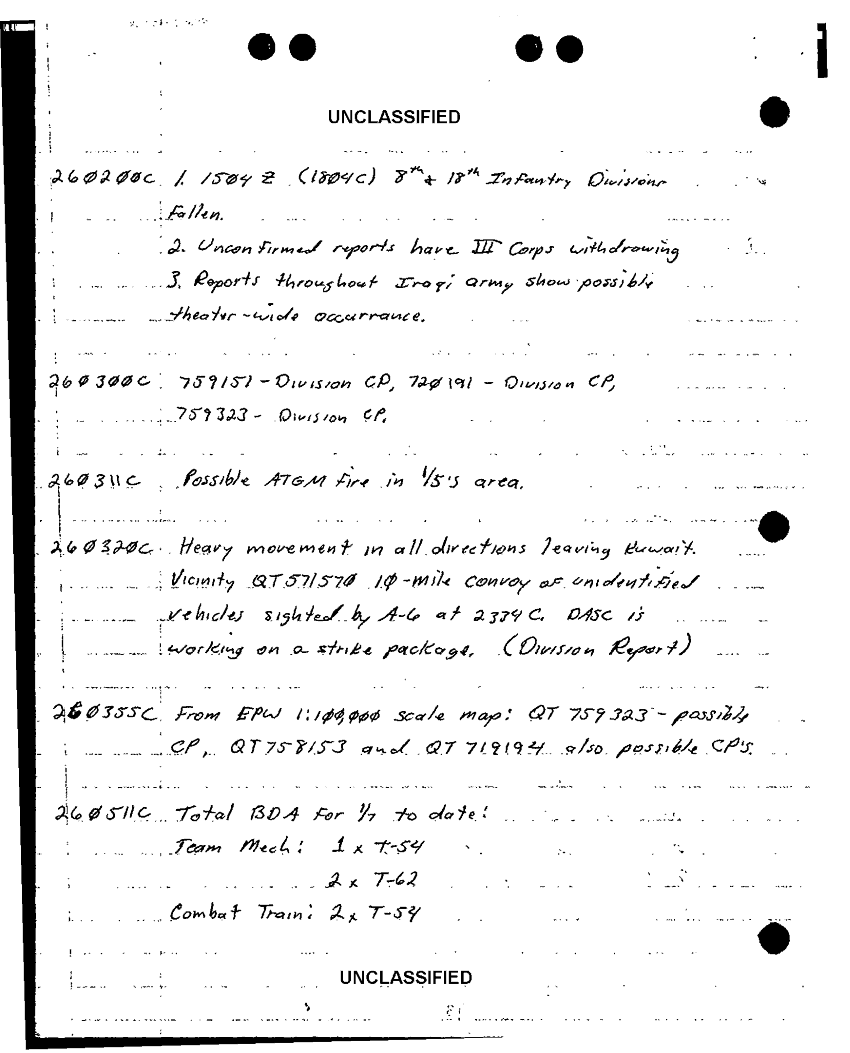 UNCLASSIFIED
260200C 1. 1504 Z (1804C) 8th & 18th Infantry Divisions
Fallen.
2. Unconfirmed reports have III Corps withdrawing
3. Reports throughout Iraqi army show possible
theater-wide occurrance.
260300C 759151 - Division CP, 720191 - Division CP,
759323 - Division CP.
260311C Possible ATGM fire in 1/5's area.
260320C Heavy movement in all directions leaving Kuwait.
Vicinity QT571570 10-mile convoy of unidentified
vehicles sighted by A-6 at 2334C. DASC is
working on a strike package. (Division Report)
260355C From EPW 1:100,000 scale map: QT 759323 - possible
CP, QT758153 and QT 719194 also possible CP's.
260511C Total BDA for 1/7 to date:
Team Mech: 1 x T-54
2 x T-62
Combat Train: 2 x T-54
UNCLASSIFIED